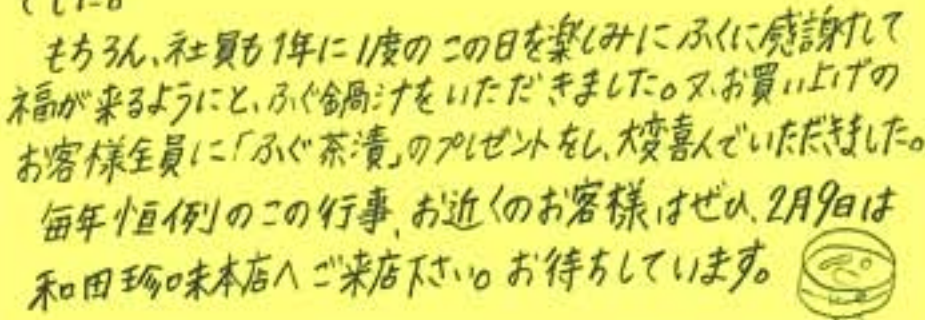 でした。
もちろん、社員も1年に1度のこの日を楽しみにふくに感謝して
福が来るようにと、ふぐ鍋汁をいただきました。又、お買い上げの
お客様全員に「ふぐ茶漬」のプレゼントをし、大変喜んでいただきました。
毎年恒例のこの行事、お近くのお客様はぜひ、2月9日は
和田珍味本店へご来店下さい。お待ちしています。